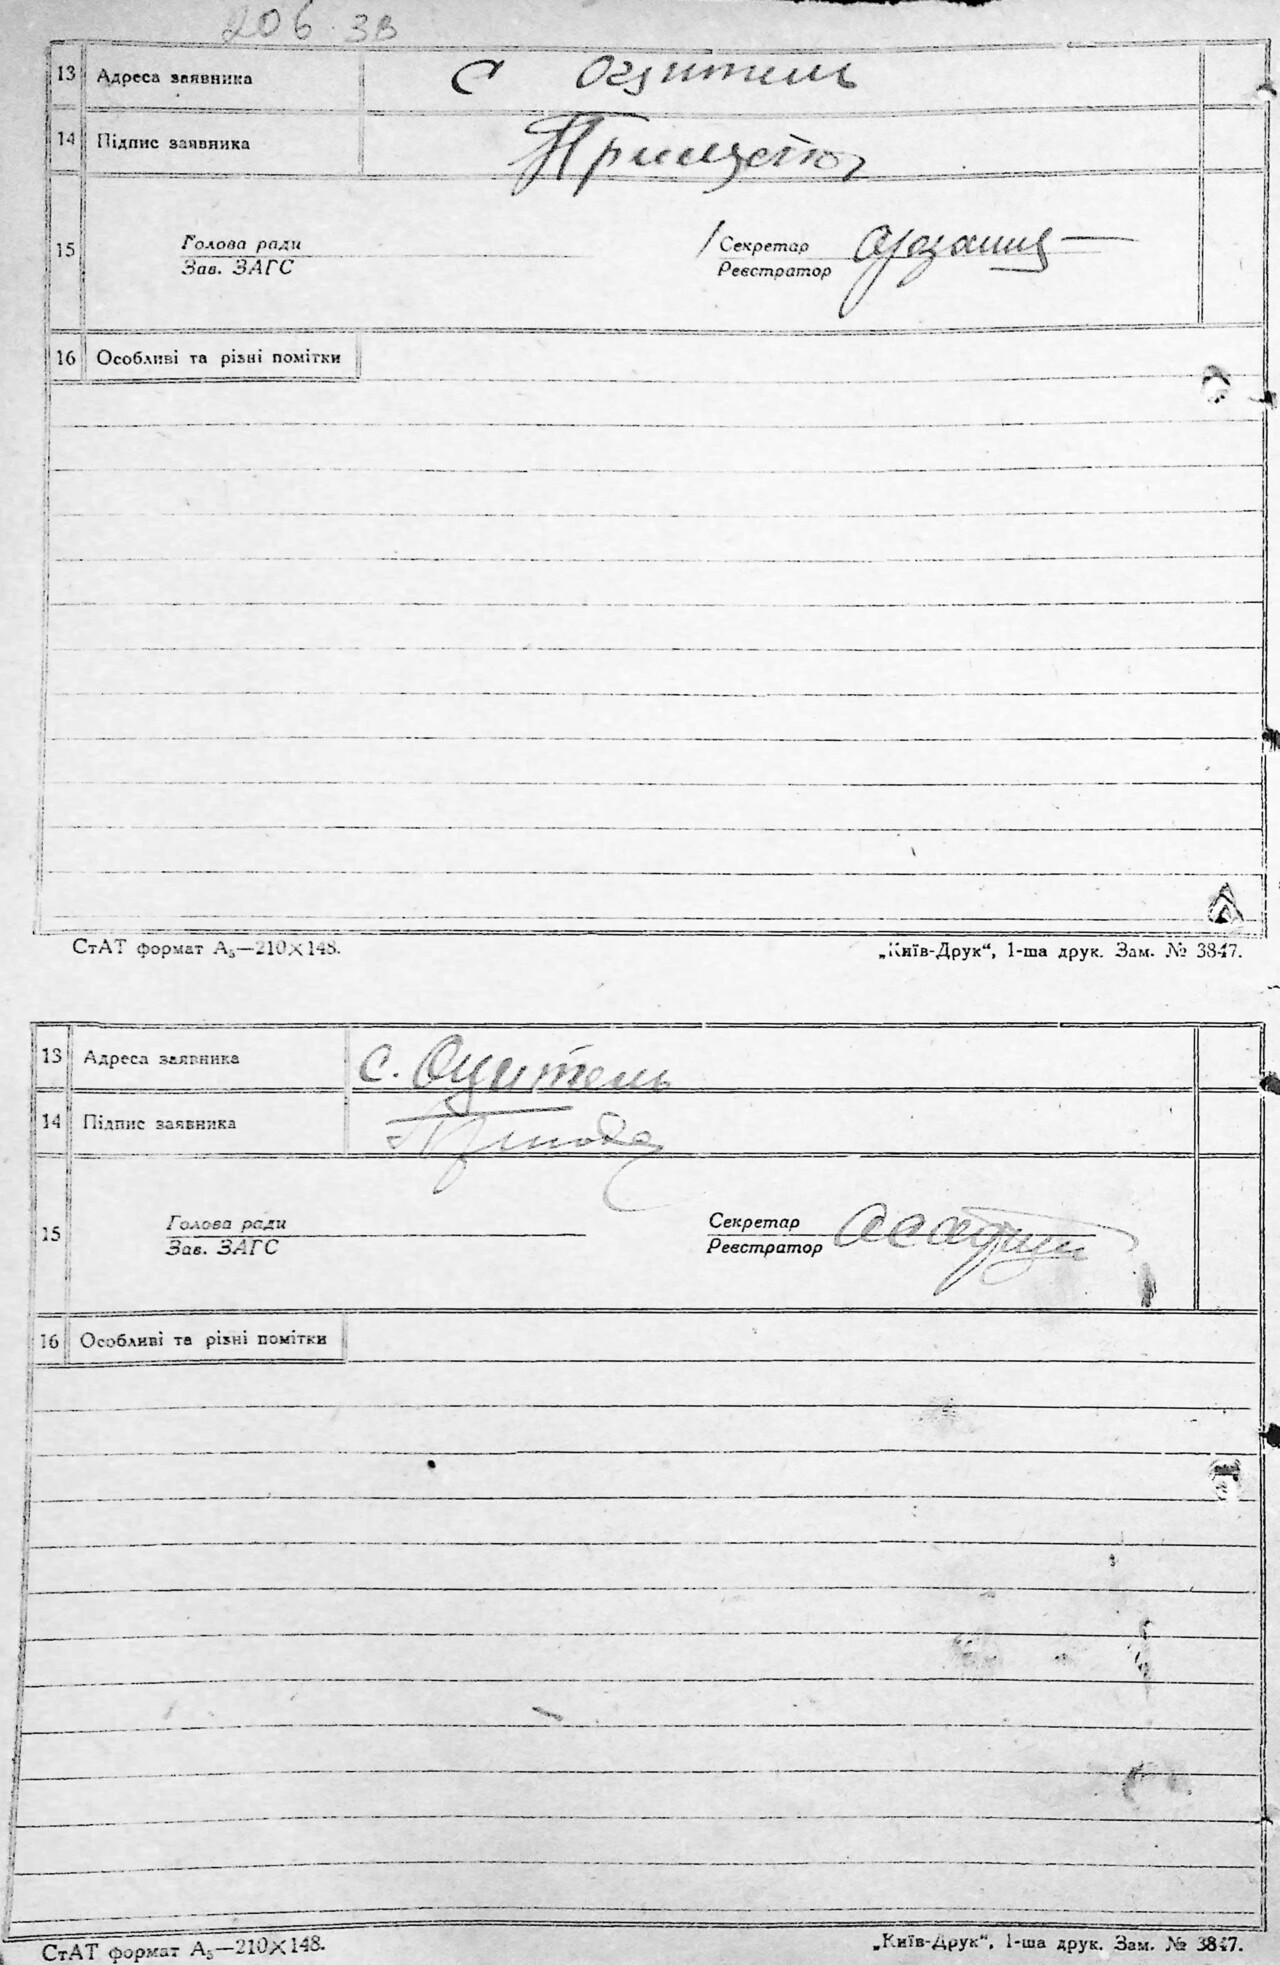 206 зв
13 Адреса заявника с Оцитель
14 Підпис заявника
15 Голова ради Секретар
Зав. ЗАГС Реєстратор
16 Особливі та різні помітки
СтАТ формат А₅—210×148. „Київ-Друк“, 1-ша друк. Зам. № 3847.
13 Адреса заявника с. Оцитель
14 Підпис заявника
15 Голова ради Секретар
Зав. ЗАГС Реєстратор
16 Особливі та різні помітки
СтАТ формат А₅—210×148. „Київ-Друк“, 1-ша друк. Зам. № 3847.